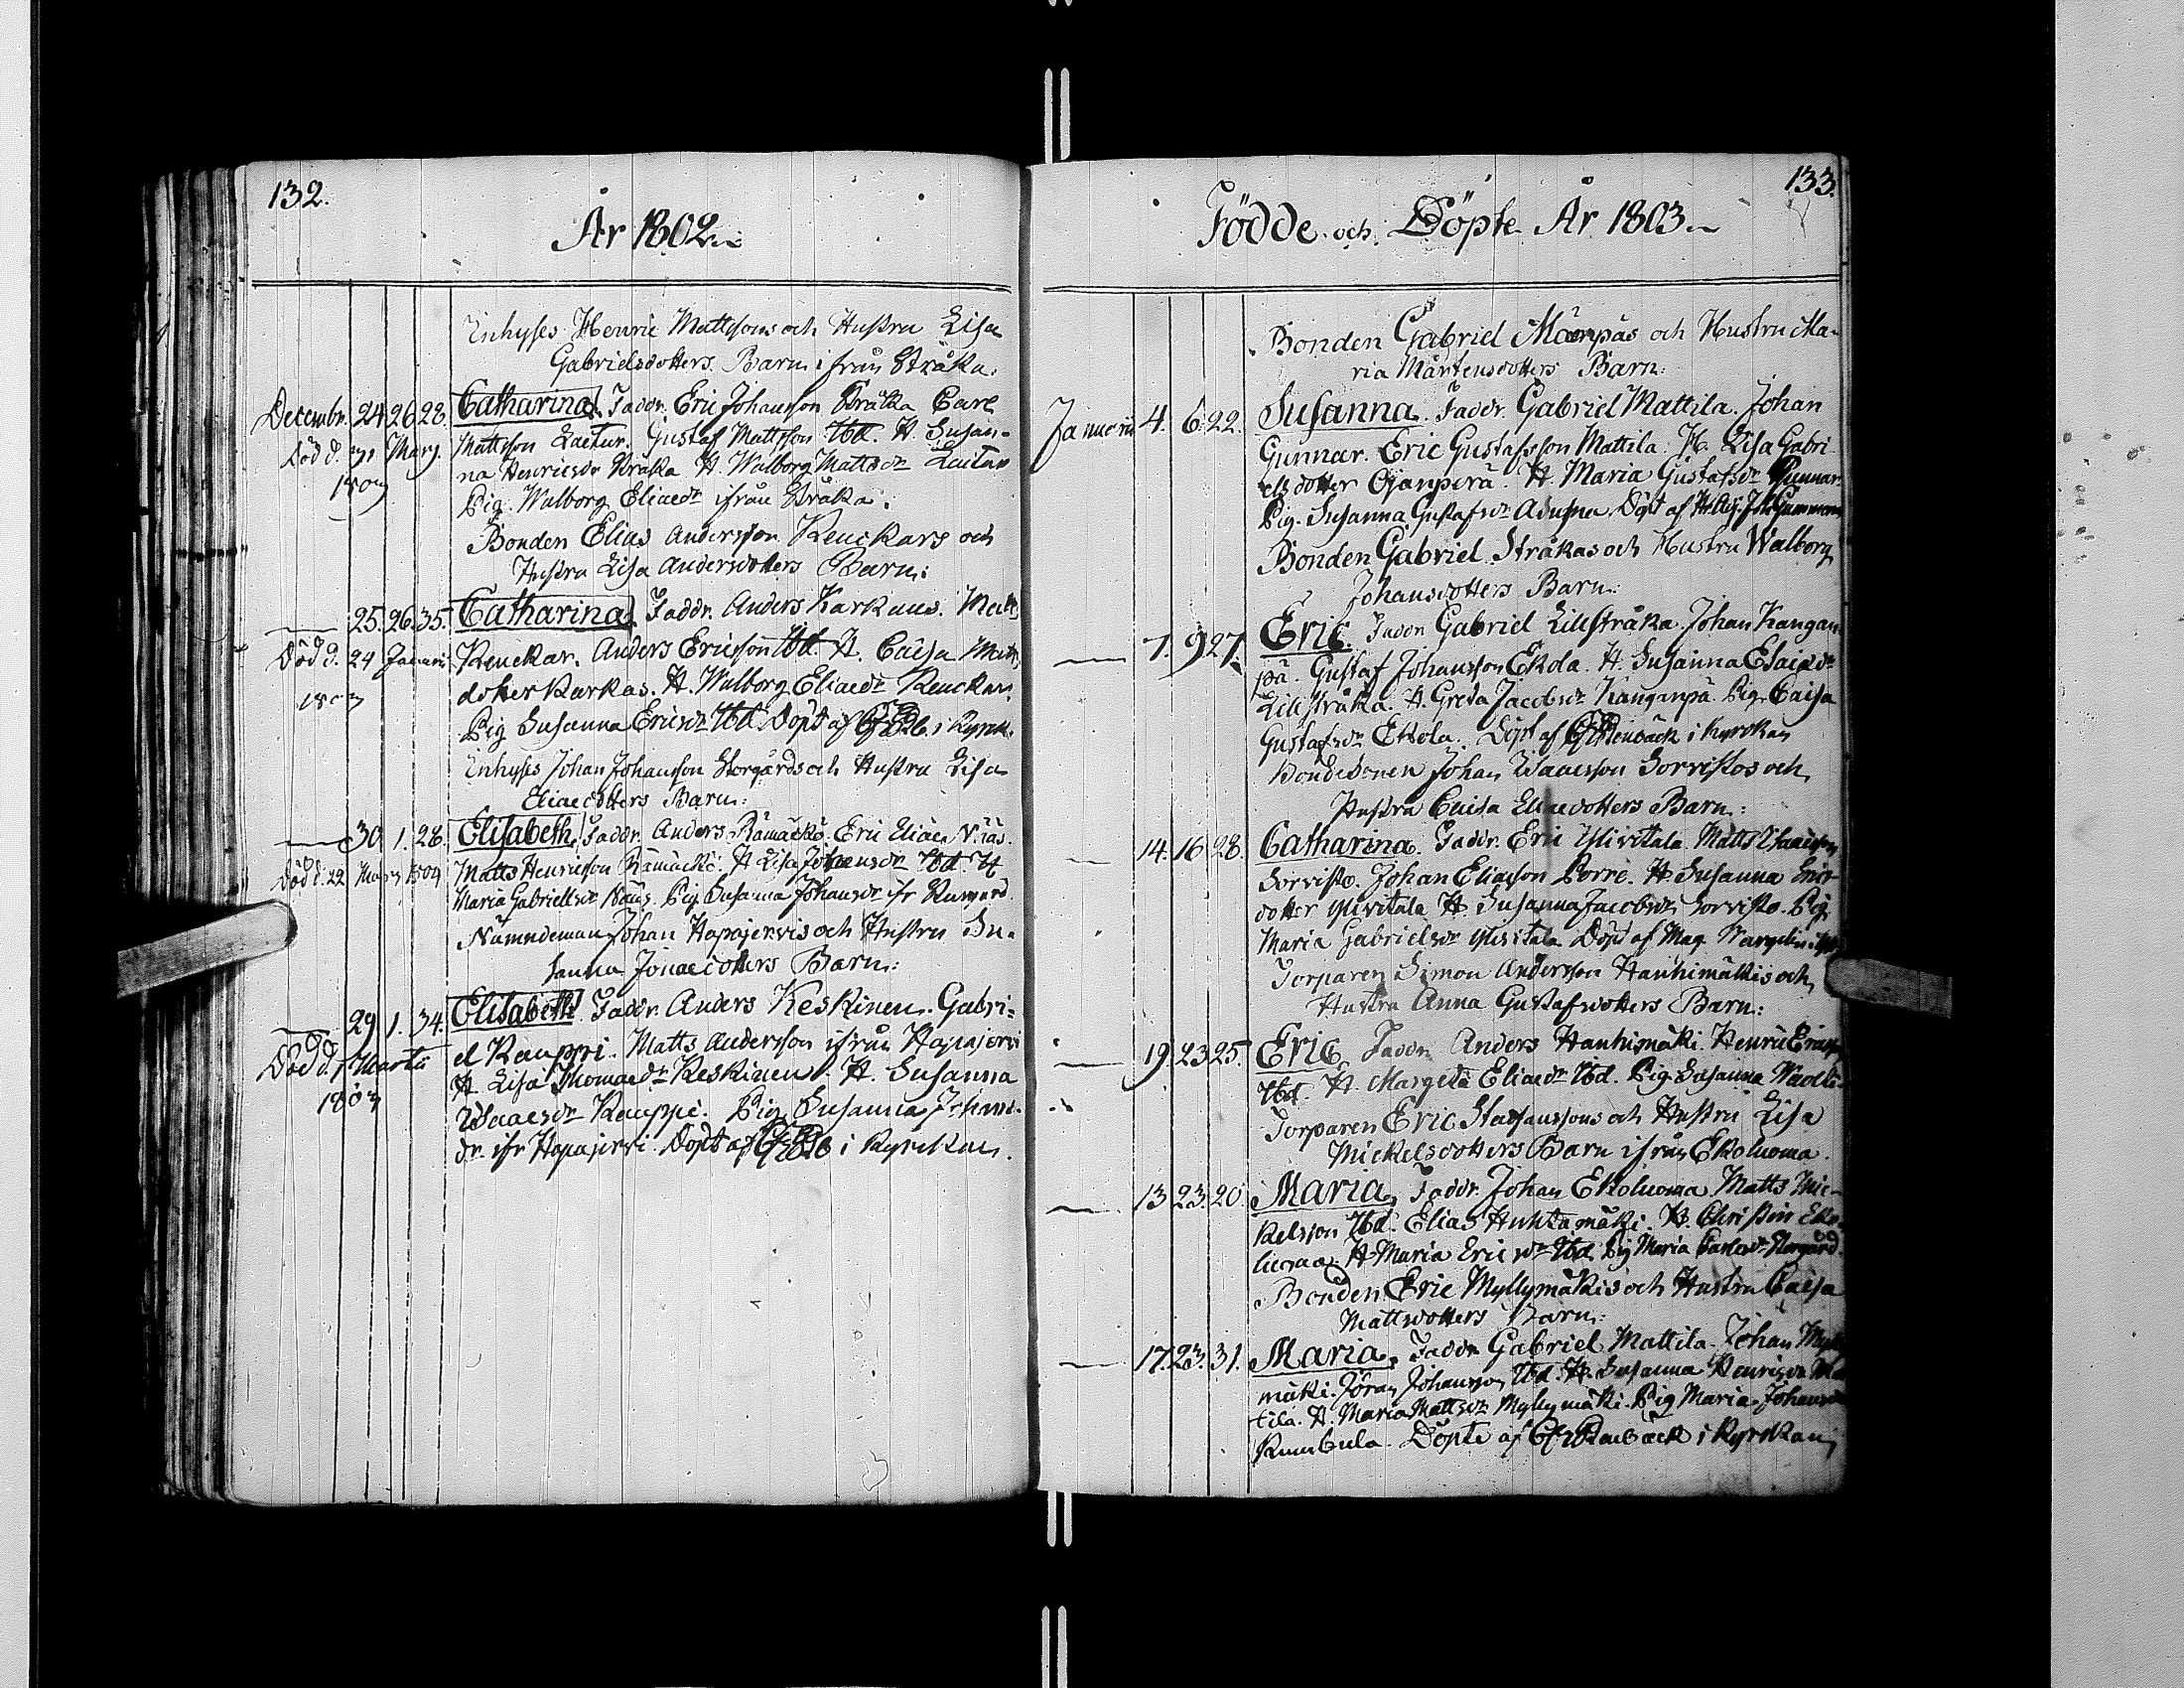 132.
År 1802
Inhyses Henric Mattsons och Hustru Lisa
Gabrielsdotters Barn ifrån Stråka.
Decembr. 24. 26. 28. Catharina. Faddr. Eric Johansson Stråka Carl
Död d. Martj. Mattsson Gustaf Mattsson Ibd. H. Susan-
na Henricsdr Stråka H. Walborg Mattsdr
Pig. Walborg Eliaedr ifrån Stråka.
Bonden Elias Andersson Renckars och
Hustru Lisa Andersdotters Barn:
25. 26. 35. Catharina. Faddr. Anders Karkaus. Matts
Död d. 24 Januari Renckar. Anders Ericsson Ibd. H. Caisa Matts
dotter Karkas. H. Walborg Eliaedr Renckar.
Pig Susanna Ericsdr Ibd. Döpt af i Kyrk.
Inhyses Johan Johansson Storgårds och Hustru Lisa
Eliaedotters Barn:
30. 1. 28. Elisabeth. Faddr. Anders Rämäckö. Eric Eliae
Död d. 22 1804 Matts Henricsson Rämäckö. H Lisa Johansdr Ibd. H
Maria Gabrielsdr Näus. Pig. Susanna Johansdr ifr
Nämndeman Johan Hapajervis och Hustru Su-
sanna Jonaedotters Barn:
29. 1. 34. Elisabeth. Faddr. Anders Keskinen. Gabri-
Död d. 1 Martii el Kauppi. Matts Andersson ifrån Hapajervi
1803 H. Lisa Thomaedr Keskinen. H. Susanna
Isaacsdr Kauppi. Pig Susanna Johans-
dr ifr Hapajervi. Döpt af i Kyrckan.
133.
Födde och Döpte År 1803
Bonden Gabriel Mäenpäs och Hustru Ma-
ria Mårtensdotters Barn:
Januarii 4. 6. 22. Susanna. Faddr. Gabriel Mattila. Johan
Gunnar. Eric Gustafsson Mattila. H. Lisa Gabri-
elsdotter Ojanperä. H. Maria Gustafsdr Gunnar
Pig. Susanna Gustafsdr Döpt af
Bonden Gabriel Stråkas och Hustru Walborg
Johansdotters Barn:
7. 9. 27. Eric. Faddr. Gabriel Lillstråka. Johan Kangan-
pä. Gustaf Johansson Ekola. H. Susanna Esaiaedr
Lillstråka. H. Greta Jacobsdr Kanganpä. Pig. Caisa
Gustafsdr Ekola. Döpt af i Kyrckan
Bondesonen Johan Isaacsson Sorvistos och
Hustru Caisa Eliaedotters Barn:
14. 16. 28. Catharina. Faddr. Eric Ylivitala. Matts Isaacsson
Sorvisto. Johan Eliasson Porre. H. Susanna Erics-
dotter Ylivitala. H. Susanna Jacobsdr Sorvisto. Pig.
Maria Gabrielsdr Ylivitala Döpt af Mag.
Torparen Simon Andersson Hanhimäkis och
Hustru Anna Gustafsdotters Barn:
19. 23. 25. Eric. Faddr. Anders Hanhimäki. Henric Ericsson
Ibd. H. Margeta Eliaedr Ibd. Pig. Susanna
Torparen Eric Staphanssons och Hustru Lisa
Mickelsdotters Barn ifrån Ekoluoma.
13. 23. 20. Maria. Faddr. Johan Ekoluoma Matts Mic-
kelsson Ibd. Elias Huhtamäki. H. Christin Eko-
luoma. H Maria Ericsdr Ibd. Pig Maria
Bonden Eric Myllymäkis och Hustru Caisa
Mattsdotters Barn:
17. 23. 31. Maria. Faddr. Gabriel Mattila. Johan Mylly
mäki. Jöran Johansson Ibd. H. Susanna Henricsdr Mat
tila. H. Maria Mattsdr Myllymäki. Pig Maria Johansdr
Rumbula. Döpte af i Kyrckan